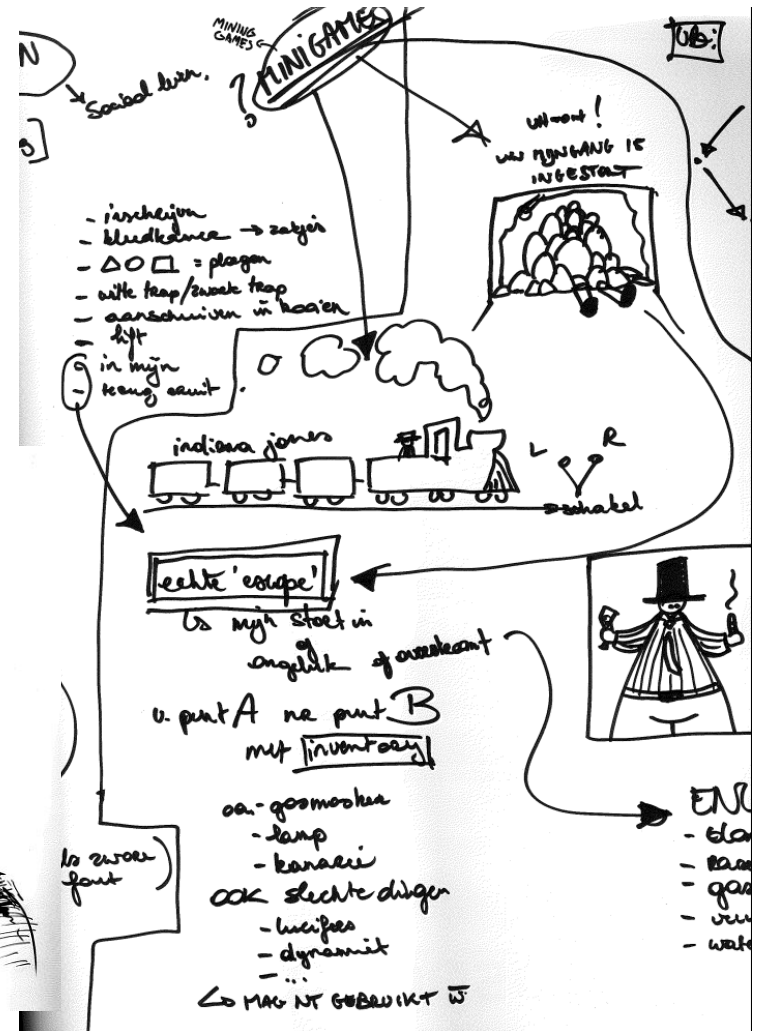 N
Sociaal leven.
MINING
GAMES
MINIGAMES
?
UB:
UW MIJNGANG IS
INGESTORT
- inschrijven
- kleedkamer → zakjes
- △ ○ □ = ploegen
- witte trap/zwarte trap
- aanschuiven in kooien
- lift
- in mijn
- terug eruit.
indiana jones
L R
schakel
echte 'escape'
↳ mijn stort in
of
ongeluk of overstroomt
v. punt A na punt B
met inventory
- gasmasker
- lamp
- kanarie
OOK slechte dingen
- lucifers
- dynamiet
- ...
↳ MAG NT GEBRUIKT W
zware
fout
- gas
- wate